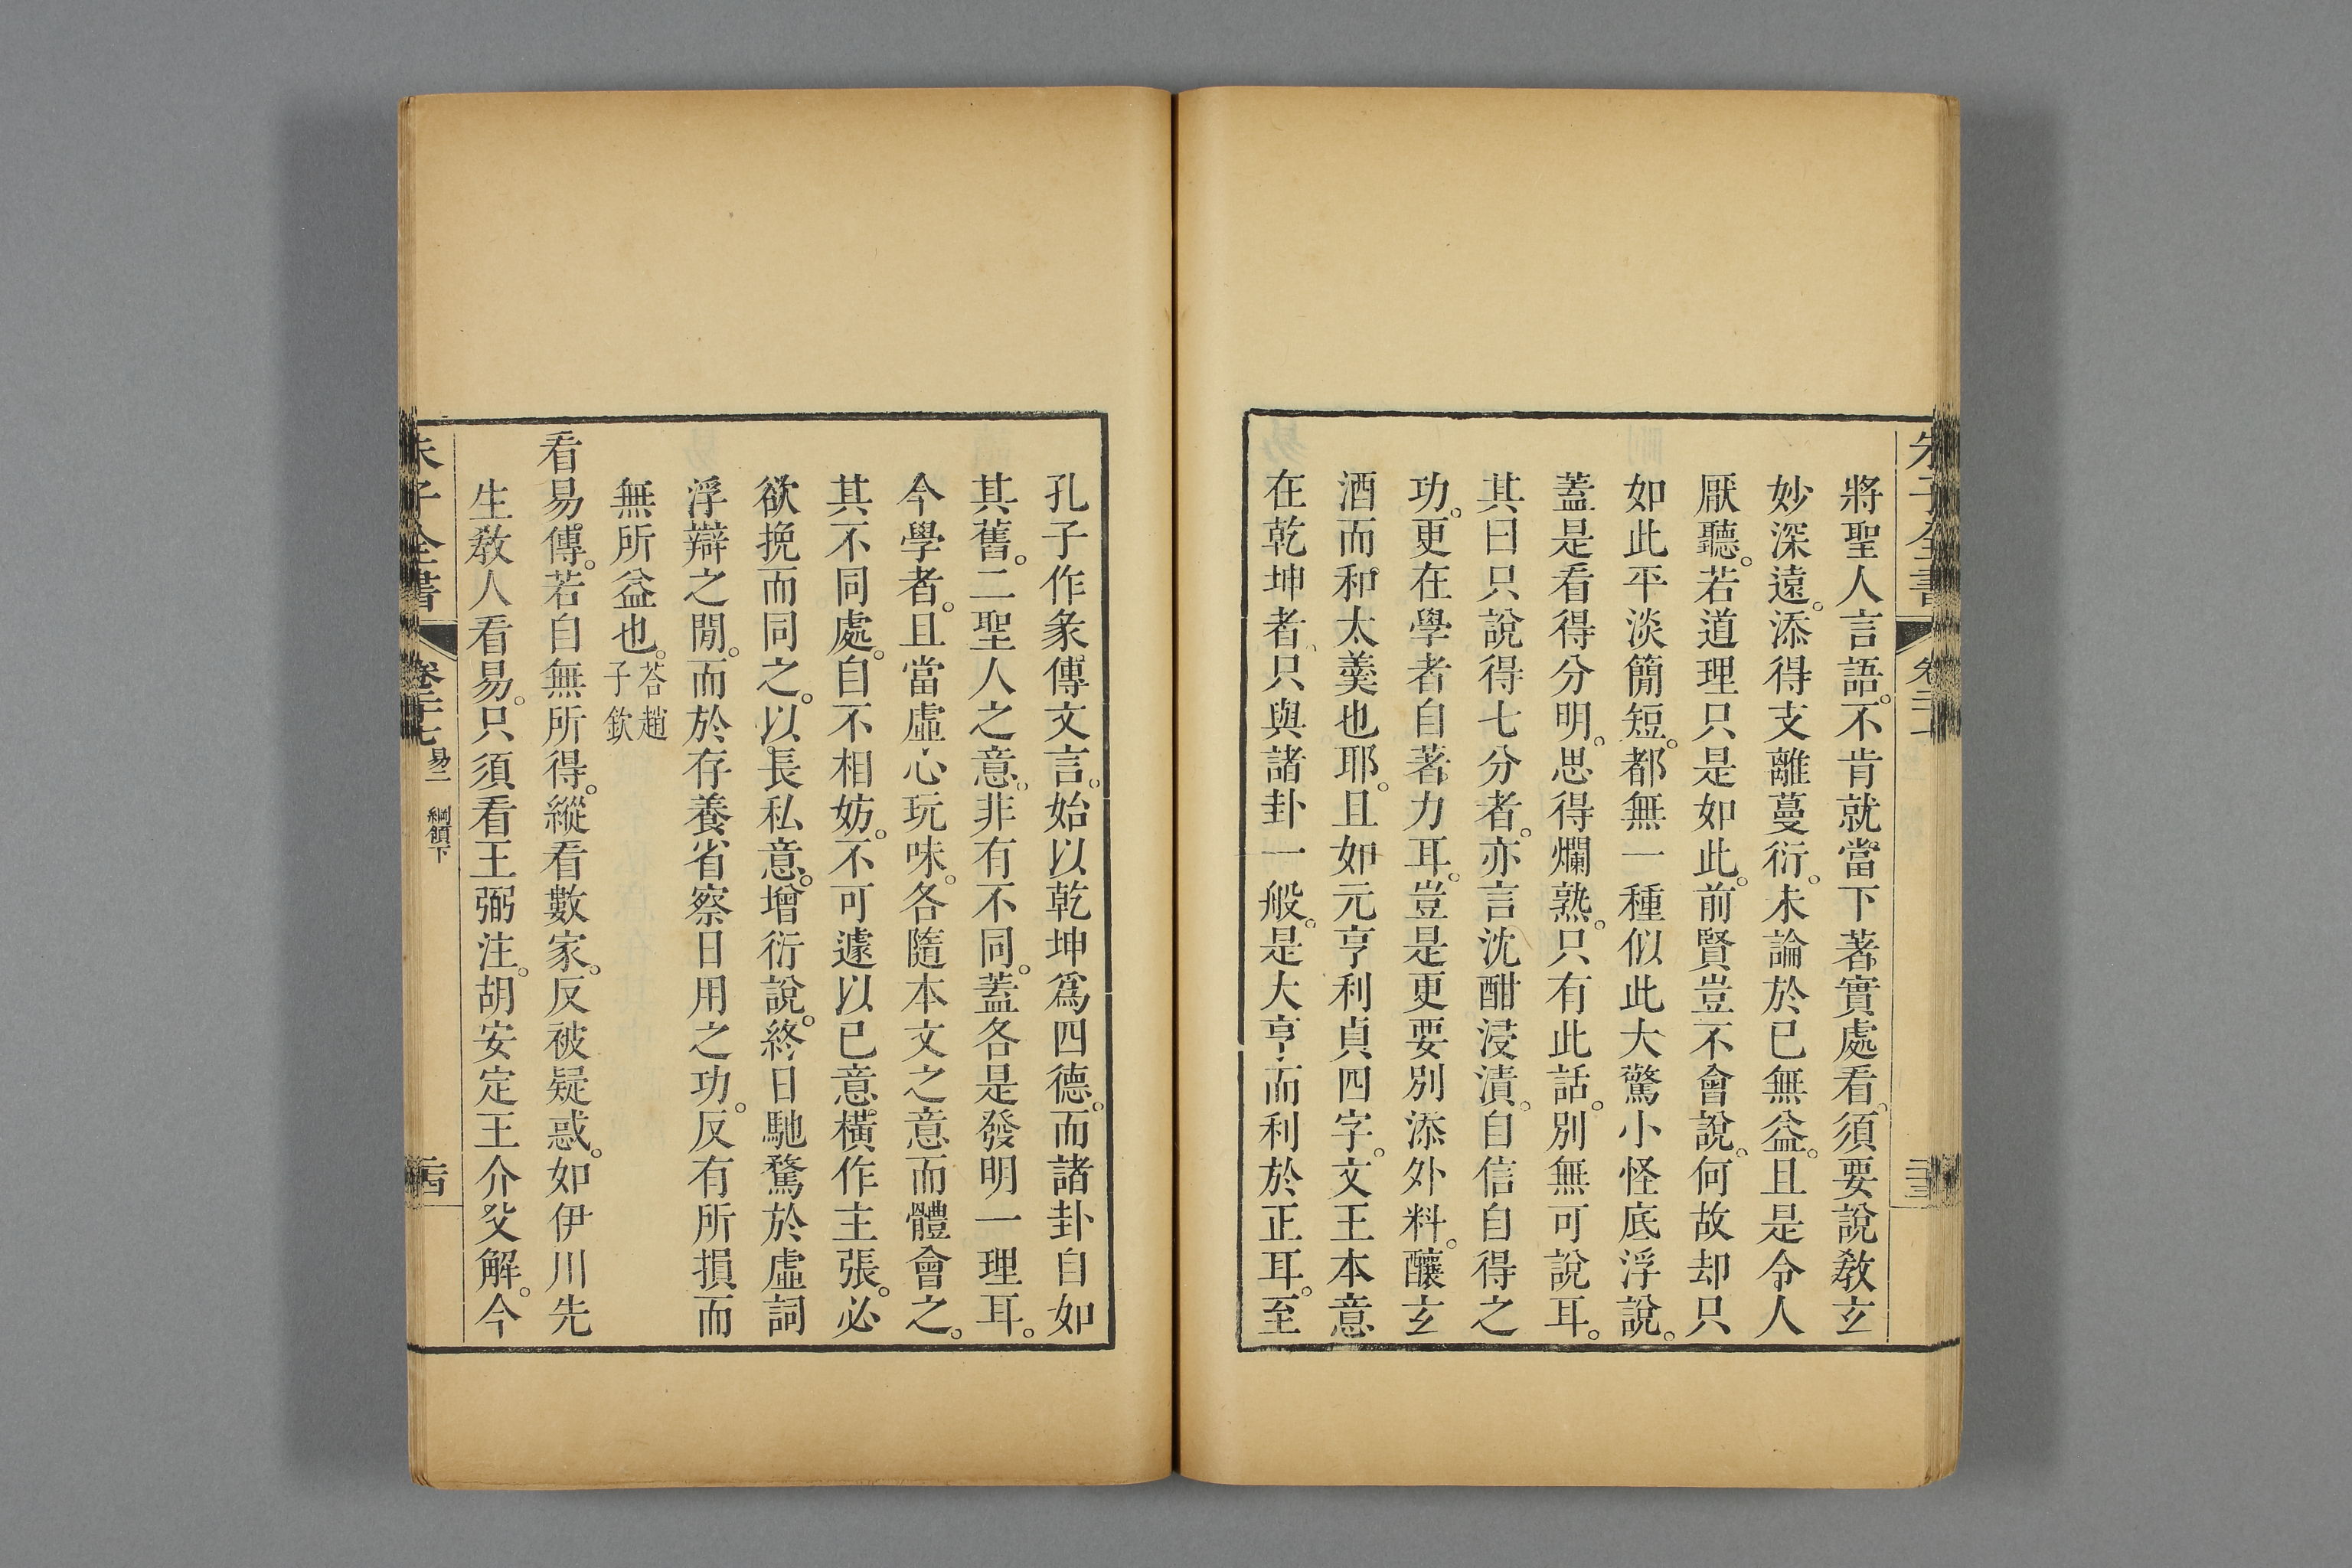 將聖人言語。不肯就當下著實處看。須要說敎玄
妙深遠。添得支離蔓衍。未論於已無益。且是令人
厭聽。若道理只是如此。前賢豈不會說。何故却只
如此平淡簡短。都無一種似此大驚小怪底浮說。
蓋是看得分明。思得爛熟。只有此話。別無可說耳。
其曰只說得七分者。亦言沈酣浸漬。自信自得之
功。更在學者自著力耳。豈是更要別添外料。釀玄
酒而和太羹也耶。且如元亨利貞四字。文王本意
在乾坤者、只與諸卦一般。是大亨而利於正耳。至
孔子作彖傳文言。始以乾坤爲四德。而諸卦自如
其舊。二聖人之意。非有不同。蓋各是發明一理耳。
今學者。且當虛心玩味。各隨本文之意而體會之。
其不同處。自不相妨。不可遽以已意橫作主張。必
欲挽而同之。以長私意。增衍說。終日馳騖於虛詞
浮辯之閒。而於存養省察日用之功。反有所損而
無所益也。荅趙子欽
看易傳。若自無所得。縱看數家。反被疑惑。如伊川先
生敎人看易。只須看王弼注。胡安定王介父解。今
朱子全書
卷二十七
易二 綱領下
二十四